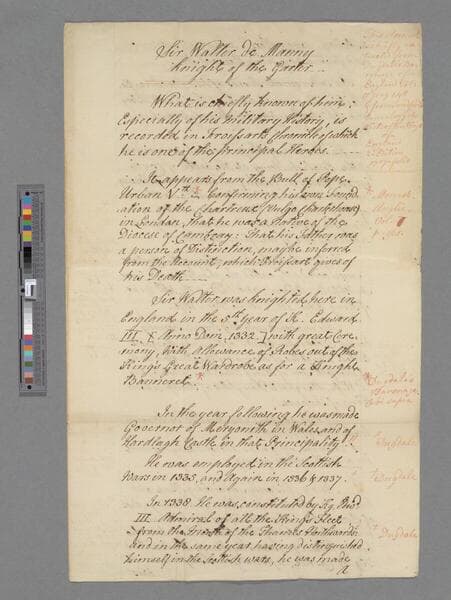 Sir Walter de Manny
Knight of the Garter
What is chiefly known of him;
Especially of his military History, is
recorded in Froissart's Chronicle, of which
he is one of the principal Heroes.
It appears from the Bull of Pope
Urban Vth Confirming his Foundation
ation of the Chartreux (vulgo Charterhouse)
in London, that he was a Native of the
Diocese of Cambray: That his Father was
a person of Distinction, maybe inferred
from the Account, which Froissart gives of
his Death
Sir Walter was knighted here in
England in the 5th year of K. Edward
III. [Anno Dom. 1332.] with great Cere
mony, With Allowance of Robes out of the
King's Great Wardrobe as for a Knight
Banneret.
In the year following he was made
Governor of Meryonith in Wales and of
Hardlagh Castle in that Principality
He was employed in the Scottish
Wars in 1335, and Again in 1336 & 1337.
In 1338 He was constituted by Kg Edwd
III. Admiral of all the Kings Fleet
from the mouth of the Thames Northwards
and in the same year having distinguished
himself in the Scottish wars, he was made
Dugdale's
Baronage
Dugdale
Dugdale
Dugdale